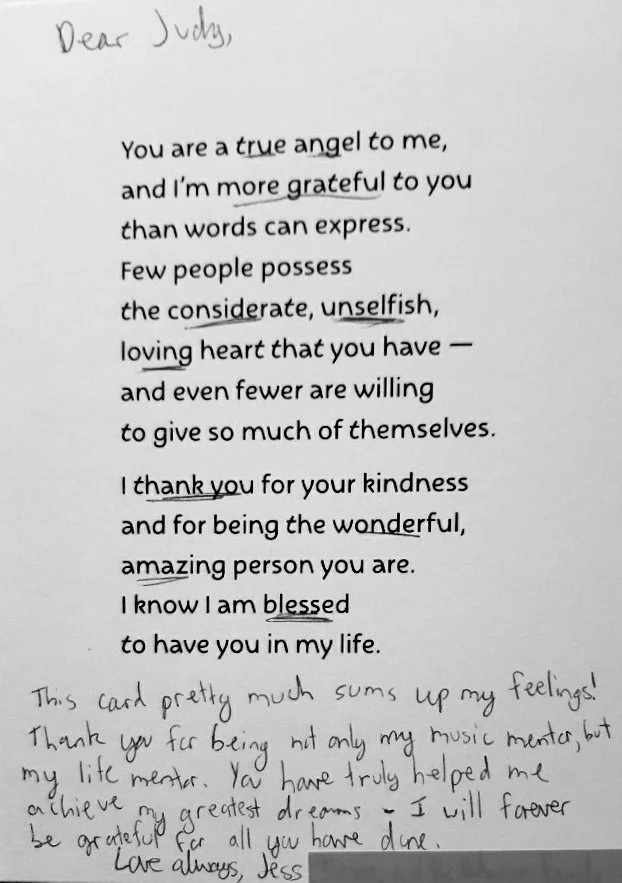 Dear Judy,
You are a true angel to me,
and I'm more grateful to you
than words can express.
Few people possess
the considerate, unselfish,
loving heart that you have —
and even fewer are willing
to give so much of themselves.
I thank you for your kindness
and for being the wonderful,
amazing person you are.
I know I am blessed
to have you in my life.
This card pretty much sums up my feelings!
Thank you for being not only my music mentor, but
my life mentor. You have truly helped me
achieve my greatest dreams - I will forever
be grateful for all you have done.
Love always, Jess